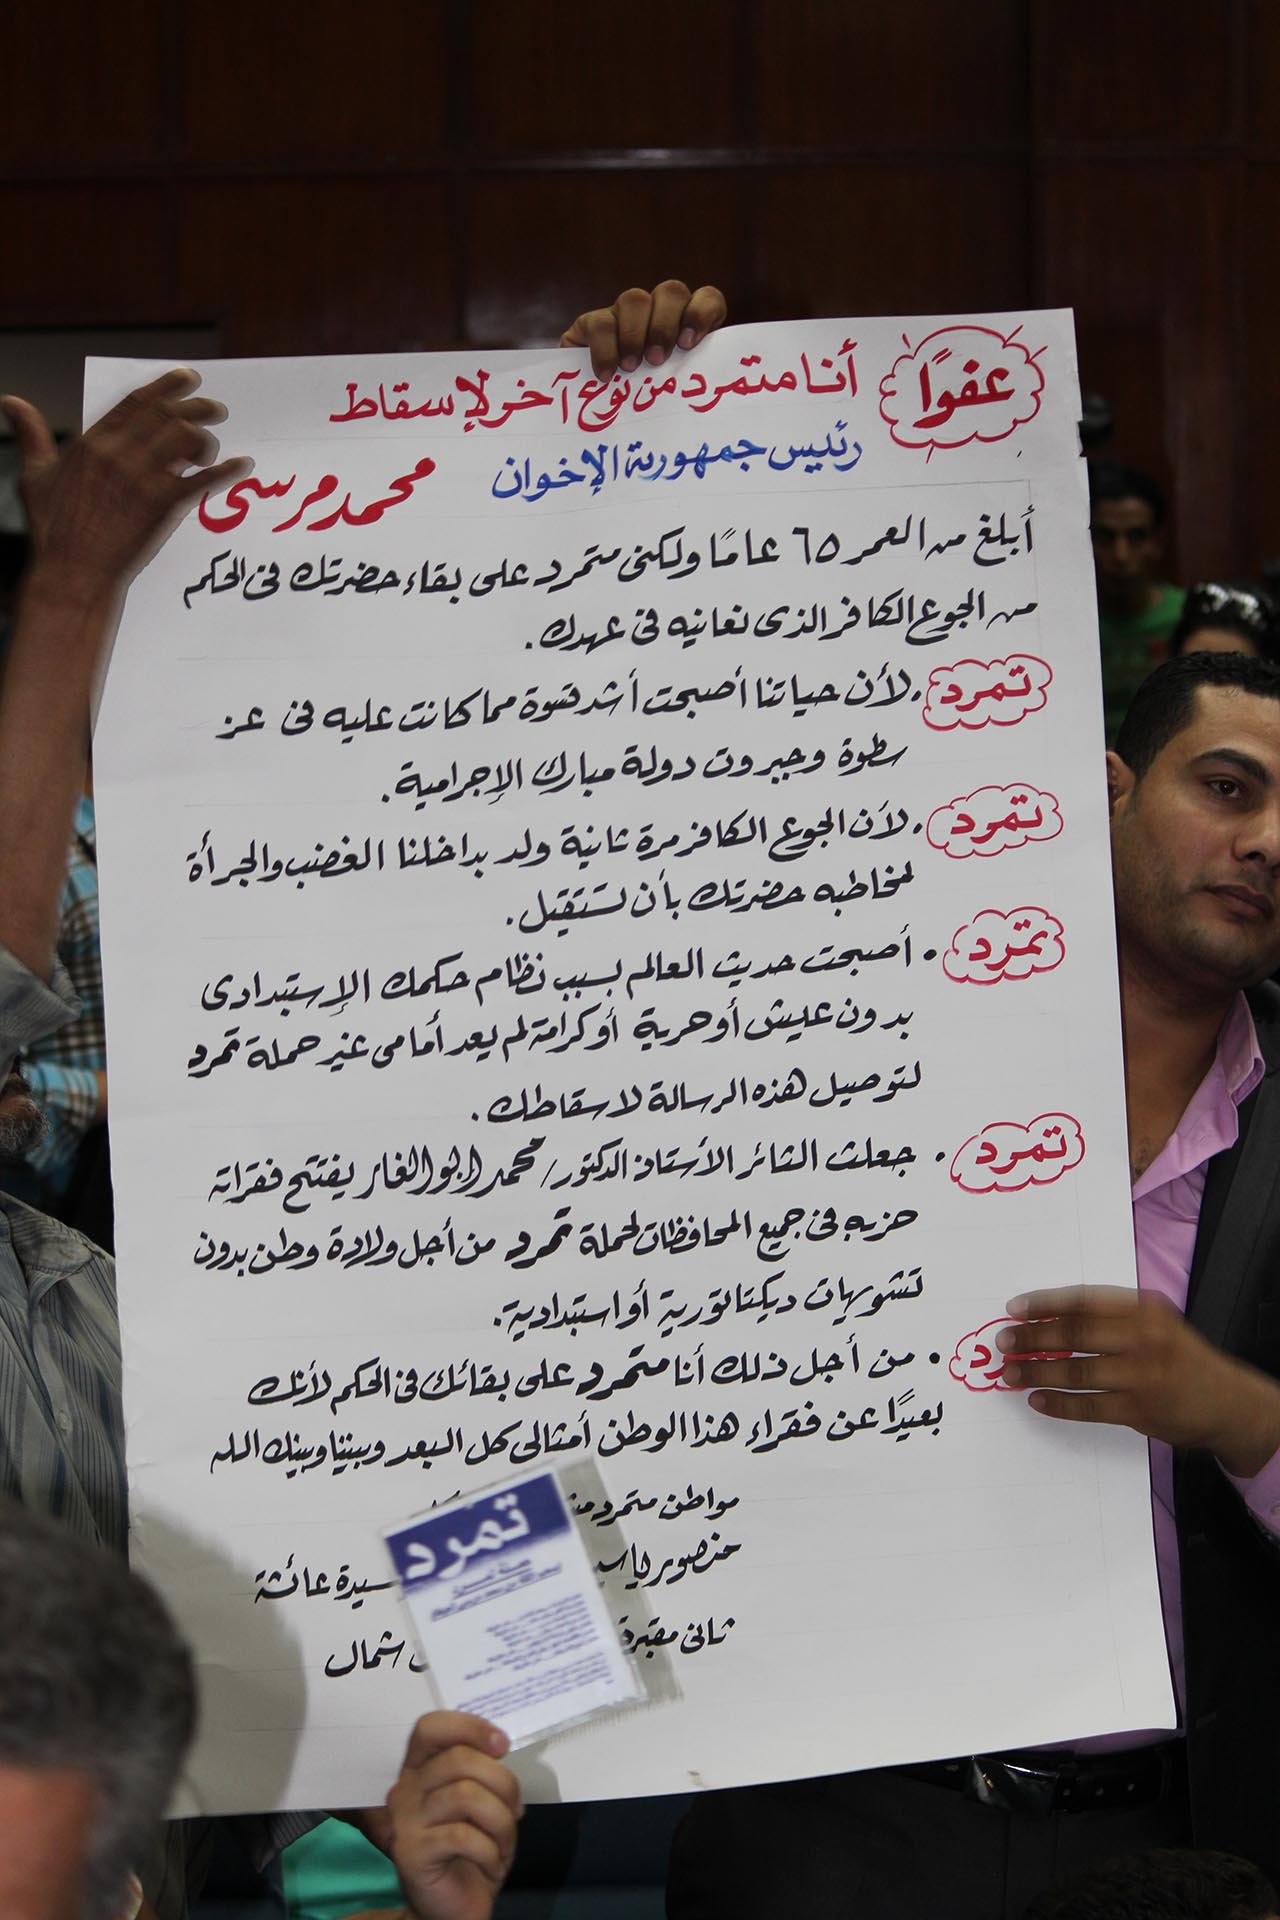 عفوًا
أنا متمرد من نوع آخر لإسقاط
رئيس جمهورية الإخوان محمد مرسى
أبلغ من العمر ٦٥ عامًا ولكنى متمرد على بقاء حضرتك فى الحكم
من الجوع الكافر الذى نعانيه فى عهدك.
تمرد • لأن حياتنا أصبحت أشد قسوة مما كانت عليه فى عز
سطوة وجبروت دولة مبارك الإجرامية.
تمرد • لأن الجوع الكافر مرة ثانية ولد بداخلنا الغضب والجرأة
لمخاطبه حضرتك بأن تستقيل.
تمرد • أصبحت حديث العالم بسبب نظام حكمك الإستبدادى
بدون عيش أو حرية أو كرامة لم يعد أمامى غير حملة تمرد
لتوصيل هذه الرسالة لاسقاطك.
تمرد • جعلت الثائر الأستاذ الدكتور/ محمد ابو الغار يفتتح فقراته
حزبه فى جميع المحافظات لحملة تمرد من أجل ولادة وطن بدون
تشوهات ديكتاتورية أو استبدادية.
رد • من أجل ذلك أنا متمرد على بقائك فى الحكم لأنك
بعيدًا عن فقراء هذا الوطن أمثالى كل البعد وبيننا وبينك الله
مواطن متمرد
منصور ياسي سيدة عائشة
ثانى مقبرة شمال
تمرد